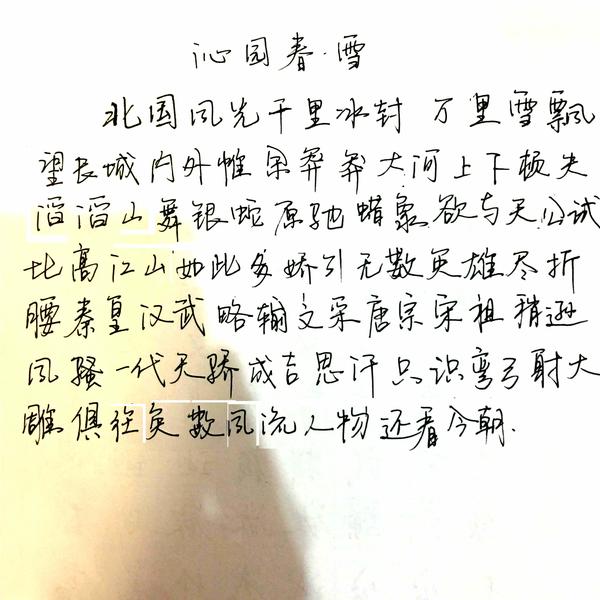 沁园春·雪
北国风光千里冰封 万里雪飘
望长城内外惟余莽莽大河上下顿失
滔滔山舞银蛇原驰蜡象欲与天公试
比高江山如此多娇引无数英雄尽折
腰秦皇汉武略输文采唐宗宋祖稍逊
风骚一代天骄成吉思汗只识弯弓射大
雕俱往矣数风流人物还看今朝.